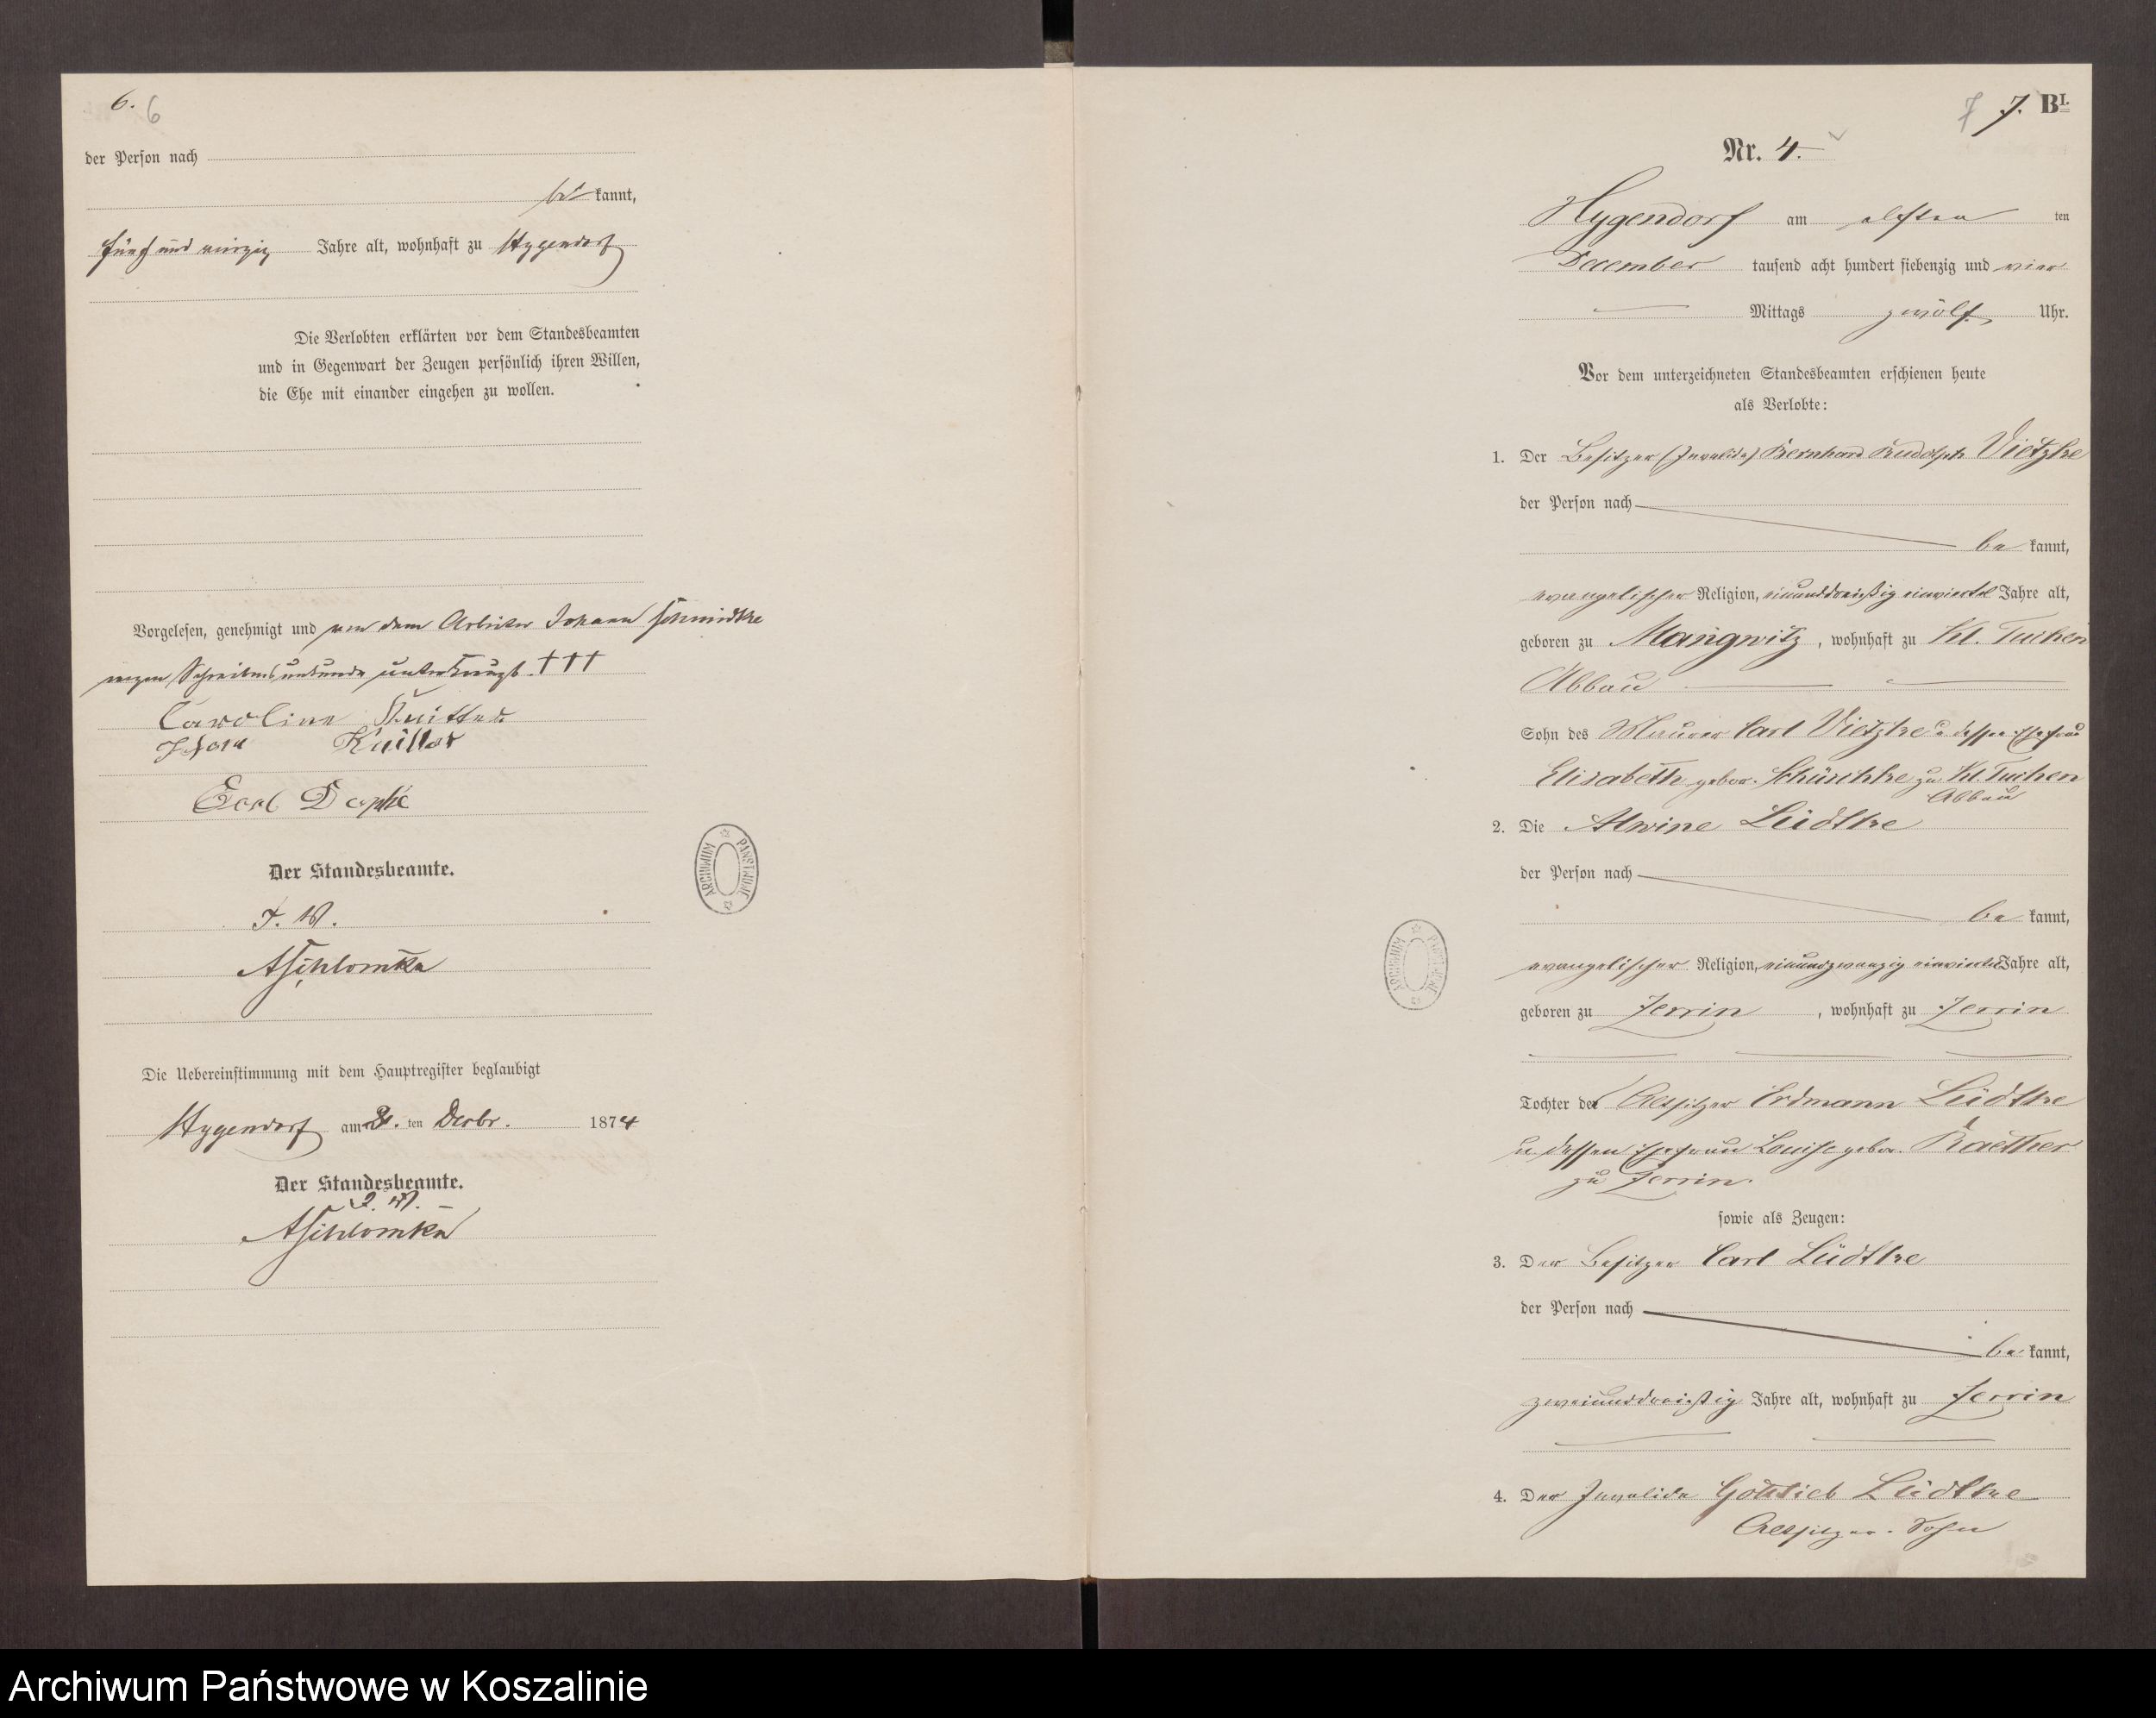 6. 6
der Person nach
be kannt,
fünf und vierzig Jahre alt, wohnhaft zu Hygendorf
Die Verlobten erklärten vor dem Standesbeamten
und in Gegenwart der Zeugen persönlich ihren Willen,
die Ehe mit einander eingehen zu wollen.
Vorgelesen, genehmigt und von dem Arbeiter Johann Schmidtke
wegen Schreibensunkunde unterkreuzt. †††
Caroline
Carl
Der Standesbeamte.
I. V.
ASchlomka
ARCHIWUM PAŃSTWOWE
Die Uebereinstimmung mit dem Hauptregister beglaubigt
Hygendorf am ten Decbr. 1874
Der Standesbeamte.
I. V.
ASchlomka
7 7. BI.
Nr. 4.
Hygendorf am elften ten
December tausend acht hundert siebenzig und vier
Mittags zwölf Uhr.
Vor dem unterzeichneten Standesbeamten erschienen heute
als Verlobte:
1. Der Besitzer (Invalide) Bernhard Rudolph Vietzke
der Person nach
be kannt,
evangelischer Religion, einunddreißig einviertel Jahre alt,
geboren zu Mangwitz, wohnhaft zu Kl. Tuchen
Abbau
Sohn des Maurer Carl Vietzke u dessen Ehefrau
Elisabeth gebor. Schüschke zu Kl. Tuchen
Abbau
2. Die Alwine Lüdtke
der Person nach
be kannt,
evangelischer Religion, einundzwanzig einviertel Jahre alt,
geboren zu Zerrin, wohnhaft zu Zerrin
ARCHIWUM PAŃSTWOWE
Tochter des Altsitzer Erdmann Lüdtke
u. dessen Ehefrau Louise gebor. Raether
zu Zerrin.
sowie als Zeugen:
3. Der Besitzer Carl Lüdtke
der Person nach
be kannt,
zweiunddreißig Jahre alt, wohnhaft zu Zerrin
4. Der Invalide Gottlieb Lüdtke
Altsitzer-Sohn
Archiwum Państwowe w Koszalinie